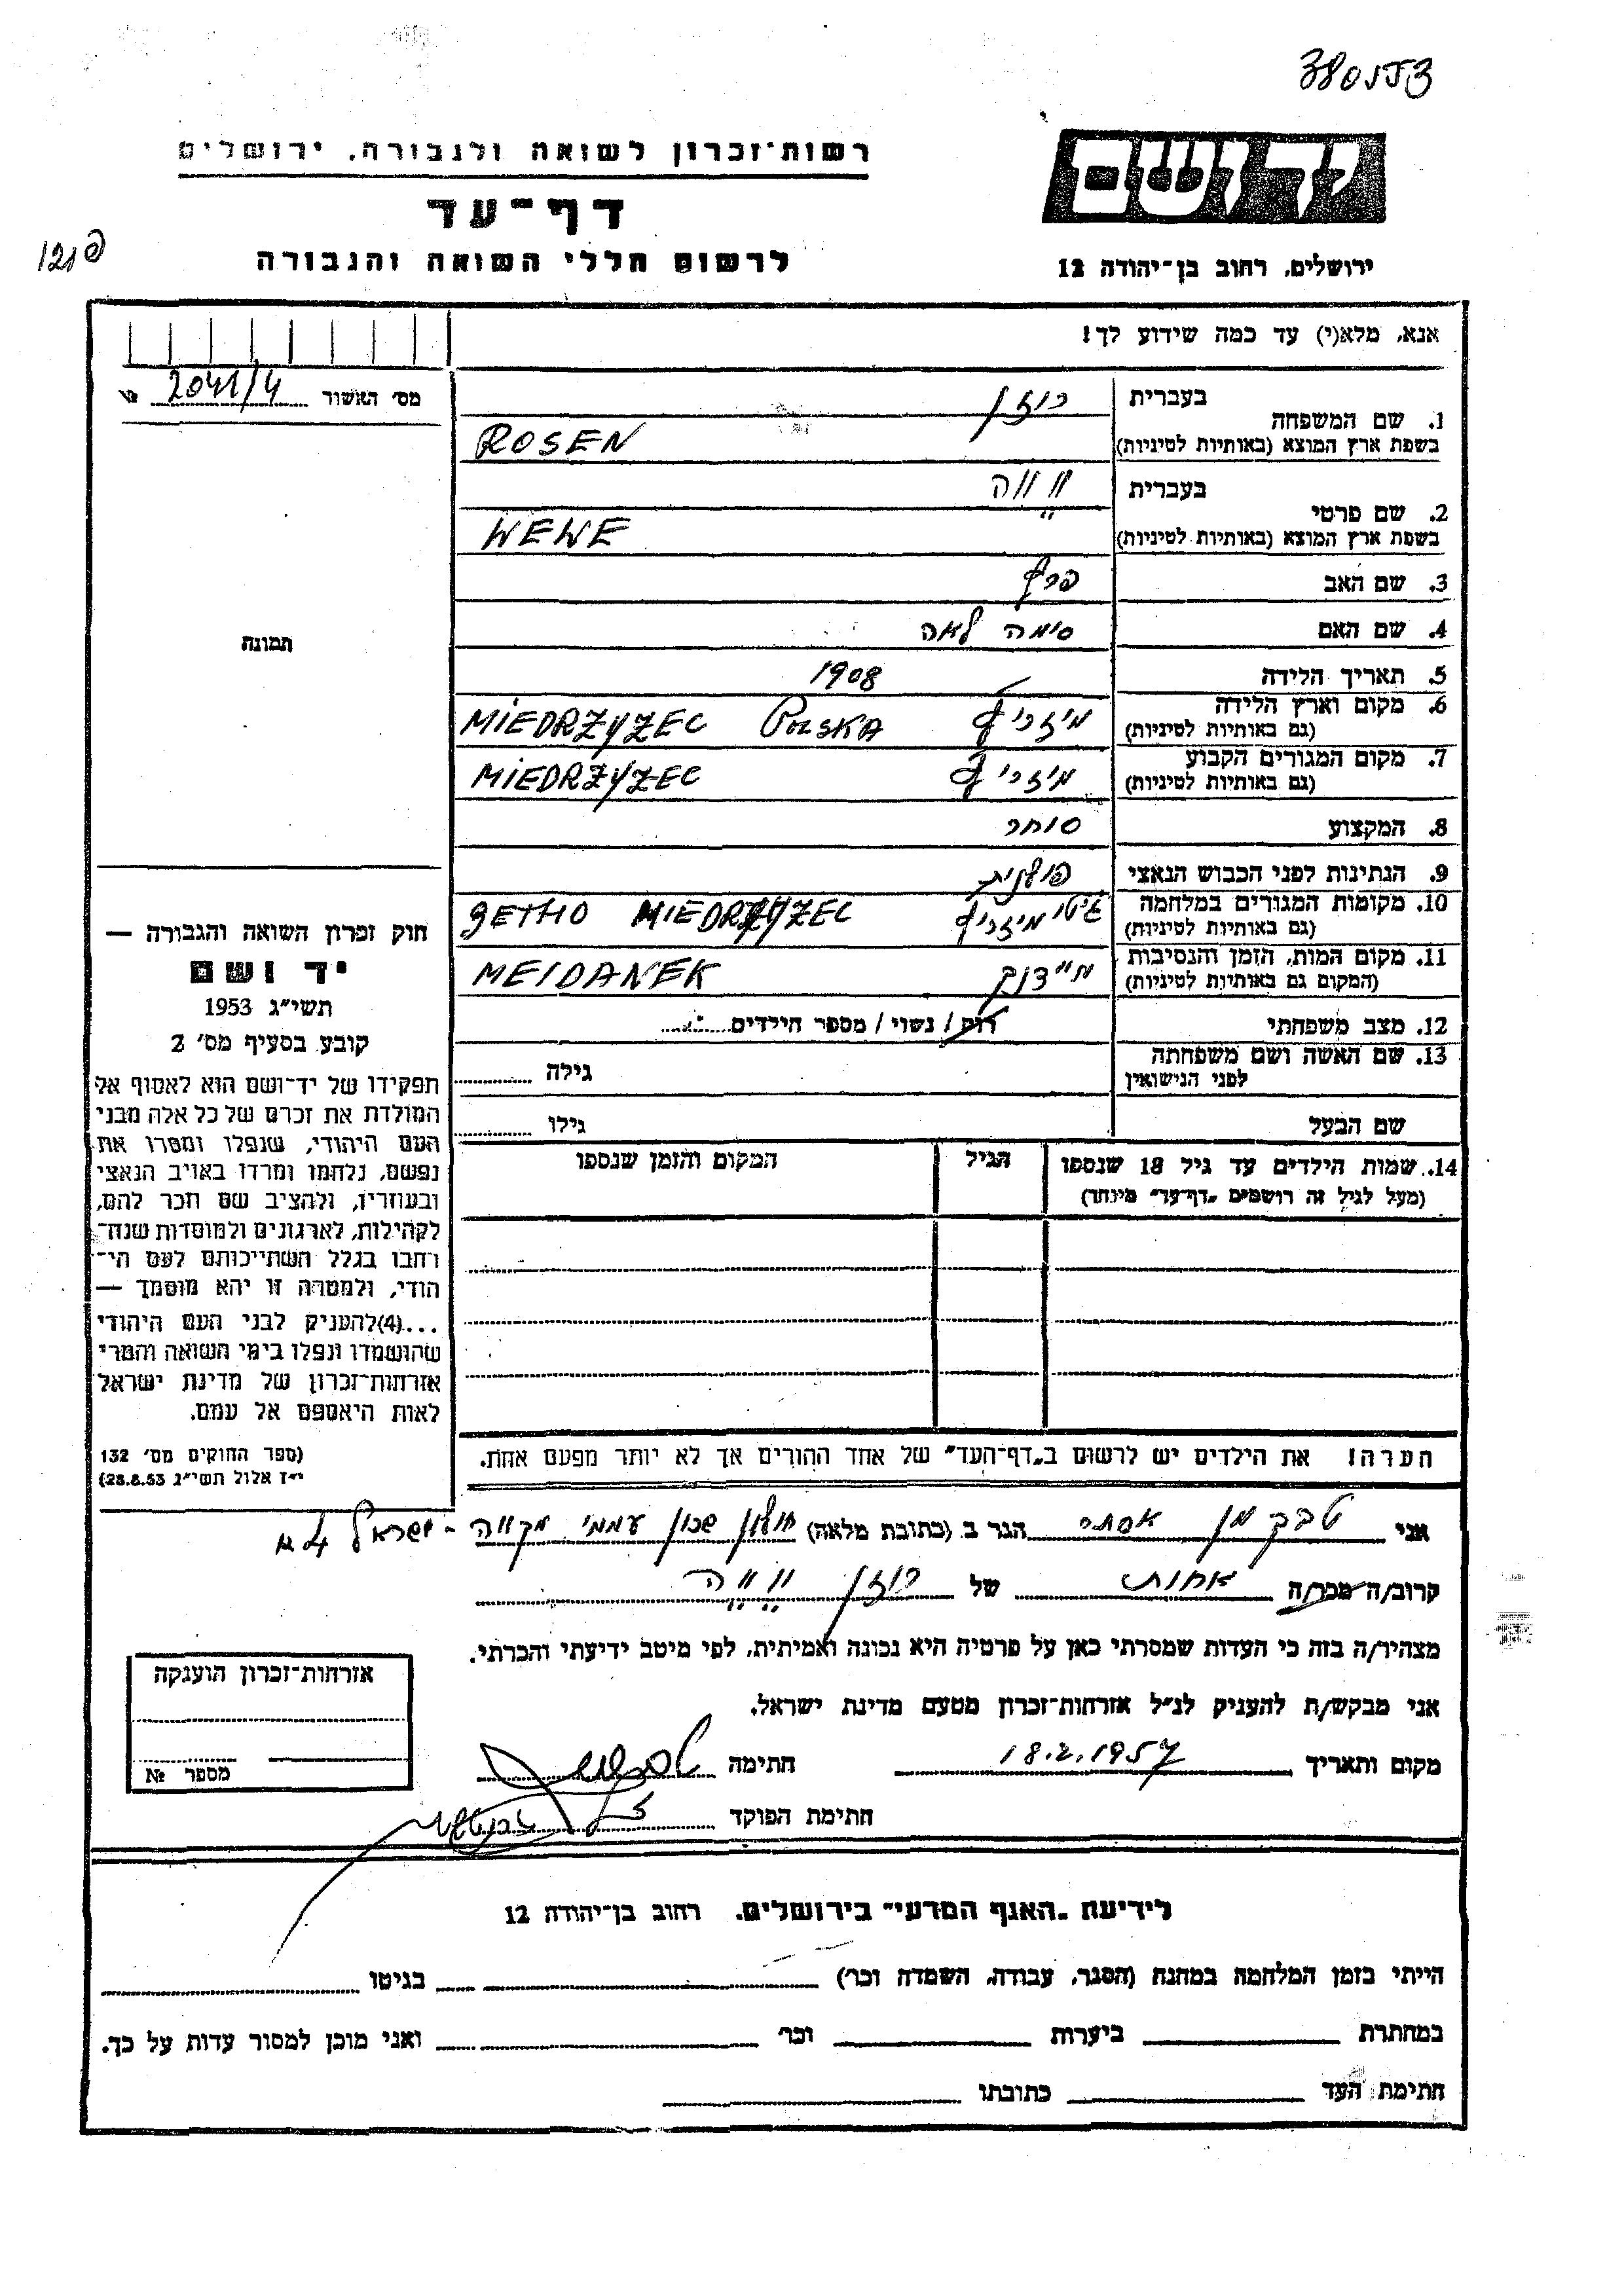 רשות־זכרון לשואה ולגבורה, ירושלים
דף־עד
לרשום חללי השואה והגבורה
יד ושם
ירושלים, רחוב בן־יהודה 12
אנא, מלא(י) עד כמה שידוע לך!
מס׳ האשור 2041/4 №
1. שם המשפחה
בעברית רוזן
בשפת ארץ המוצא (באותיות לטיניות) ROSEN
2. שם פרטי
בעברית וווה
בשפת ארץ המוצא (באותיות לטיניות) WEWE
3. שם האב
4. שם האם סימה לאה
5. תאריך הלידה 1908
6. מקום וארץ הלידה
(גם באותיות לטיניות) מיזריץ MIEDRZYZEC POLSKA
7. מקום המגורים הקבוע
(גם באותיות לטיניות) מיזריץ MIEDRZYZEC
8. המקצוע סוחר
9. הנתינות לפני הכבוש הנאצי פולנית
10. מקומות המגורים במלחמה
(גם באותיות לטיניות) גיטו מיזריץ GETHO MIEDRZYZEC
11. מקום המות, הזמן והנסיבות
(המקום גם באותיות לטיניות) מיידנק MEIDANEK
12. מצב משפחתי רוק / נשוי / מספר הילדים
13. שם האשה ושם משפחתה
לפני הנישואין גילה
שם הבעל גילו
14. שמות הילדים עד גיל 18 שנספו
(מעל לגיל זה רושמים „דף־עד״ מיוחד)
הגיל
המקום והזמן שנספו
הערה! את הילדים יש לרשום ב„דף־העד״ של אחד ההורים אך לא יותר מפעם אחת.
תמונה
חוק זכרון השואה והגבורה —
יד ושם
תשי״ג 1953
קובע בסעיף מס׳ 2
תפקידו של יד־ושם הוא לאסוף אל
המולדת את זכרם של כל אלה מבני
העם היהודי, שנפלו ומסרו את
נפשם, נלחמו ומרדו באויב הנאצי
ובעוזריו, ולהציב שם וזכר להם,
לקהילות, לארגונים ולמוסדות שנח־
רחבו בגלל השתייכותם לעם הי־
הודי, ולמטרה זו יהא מוסמך —
...(4) להעניק לבני העם היהודי
שהושמדו ונפלו בימי השואה והמרי
אזרחות־זכרון של מדינת ישראל
לאות היאספם אל עמם.
(ספר החוקים מס׳ 132
י״ז אלול תשי״ג 28.8.53)
אני טבקמן אסתר הגר ב (כתובת מלאה) חולון שכון עממי מקווה - ישראל
קרוב/ה מכר/ה אחות של רוזן וווה
מצהיר/ה בזה כי העדות שמסרתי כאן על פרטיה היא נכונה ואמיתית, לפי מיטב ידיעתי והכרתי.
אני מבקש/ת להעניק לנ״ל אזרחות־זכרון מטעם מדינת ישראל.
מקום ותאריך 18.2.1957 חתימה
חתימת הפוקד
אזרחות־זכרון הוענקה
מספר №
לידיעת „האגף המדעי״ בירושלים, רחוב בן־יהודה 12
הייתי בזמן המלחמה במחנה (הסגר, עבודה, השמדה וכר׳) בגיטו
במחתרת ביערות וכר׳ ואני מוכן למסור עדות על כך.
חתימת העד כתובתו